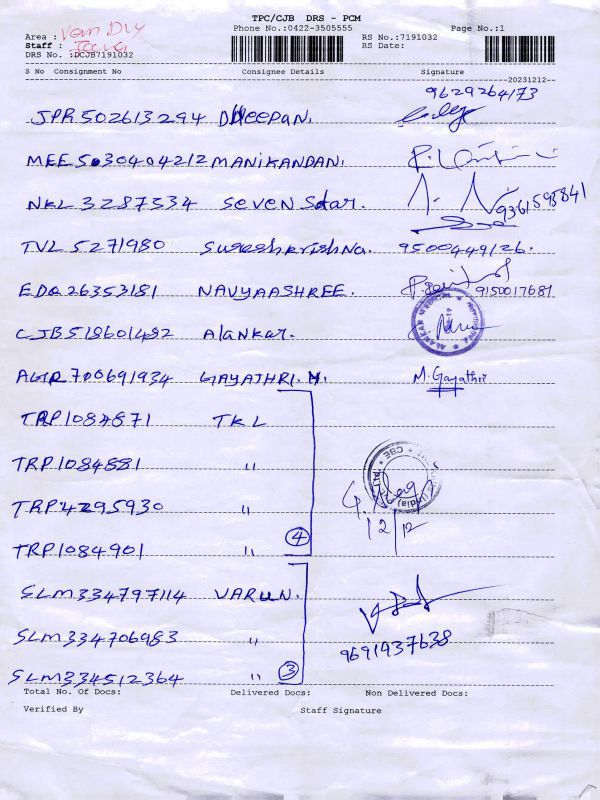 TPC/CJB DRS - PCM
Area : Van Dly
Phone No.:0422-3505555
Page No.:1
Staff :
RS No.:7191032
DRS No. :DCJB7191032
RS Date:
S No Consignment No Consignee Details Signature
20231212--
9629264173
JPR502613294 DHEEPAN.
MEE5030404212 MANIKANDAN.
NKL 3287334 Seven Star. 9361598841
TVL 5271980 Sureshkrishna. 9500449126.
EDQ26353181 NAVYAASHREE. 9150017681
CJB518601482 Alankar.
ALANKAR MEDICAL
AGR700691934 GAYATHRI.M. M.Gayathri
TRP1084871 TKL
TRP1084881 "
CBE
TRP4295930 "
12/12
TRP1084901 " 4
SLM334797114 VARUN.
SLM334706983 "
9691937638
SLM334512364 " 3
Total No. Of Docs: Delivered Docs: Non Delivered Docs:
Verified By Staff Signature